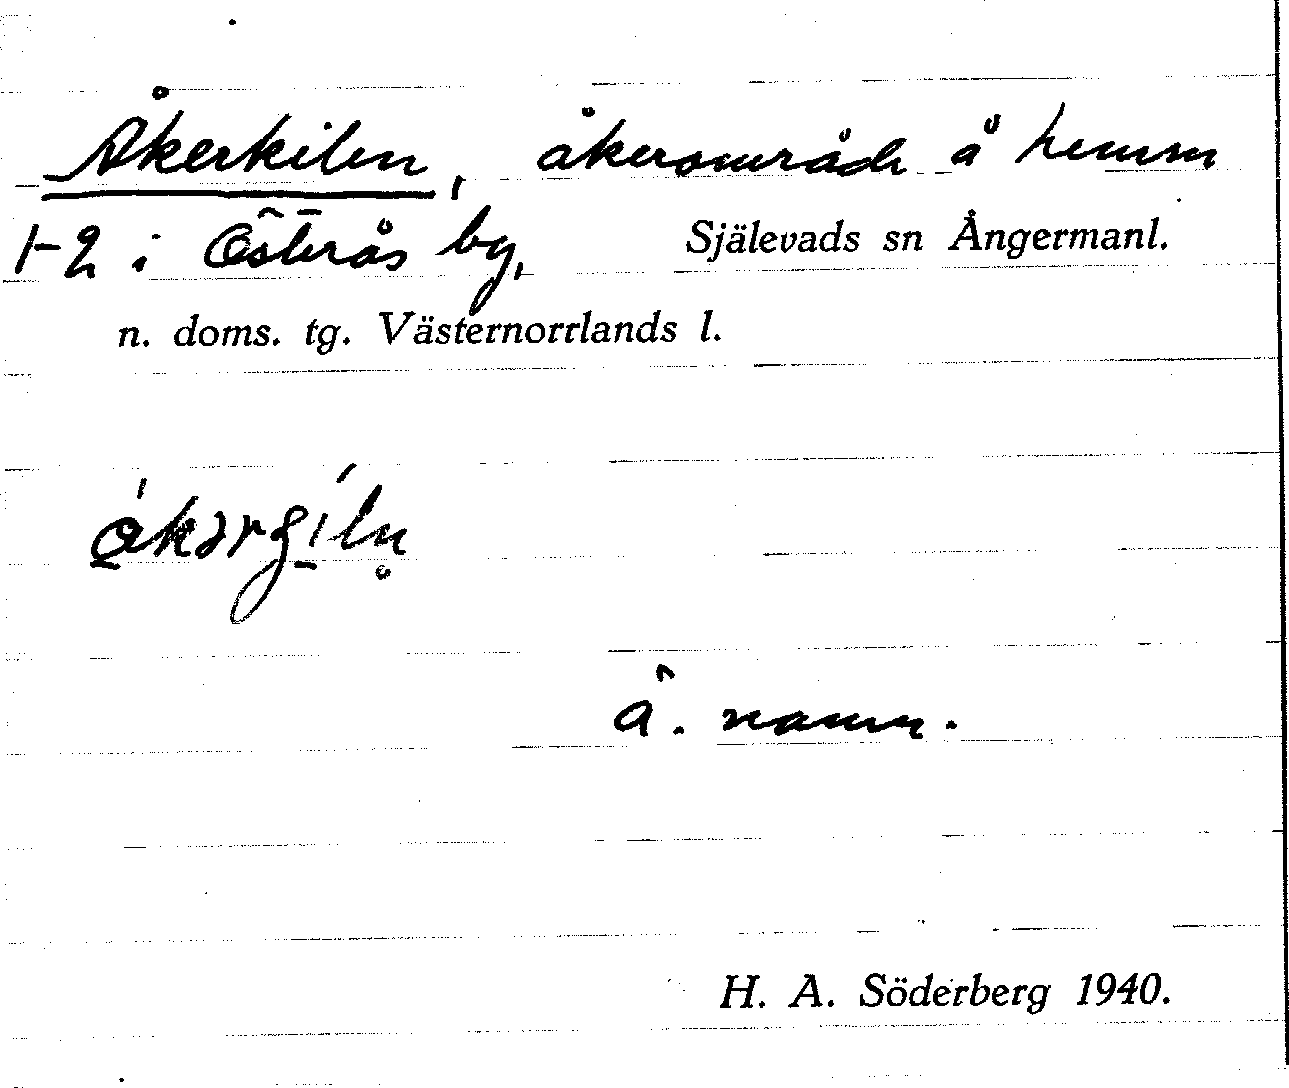 Åkerkilen, åkerområde å hemm
1-2 i Österås by, Själevads sn Ångermanl.
n. doms. tg. Västernorrlands l.
å. namn.
H. A. Söderberg 1940.